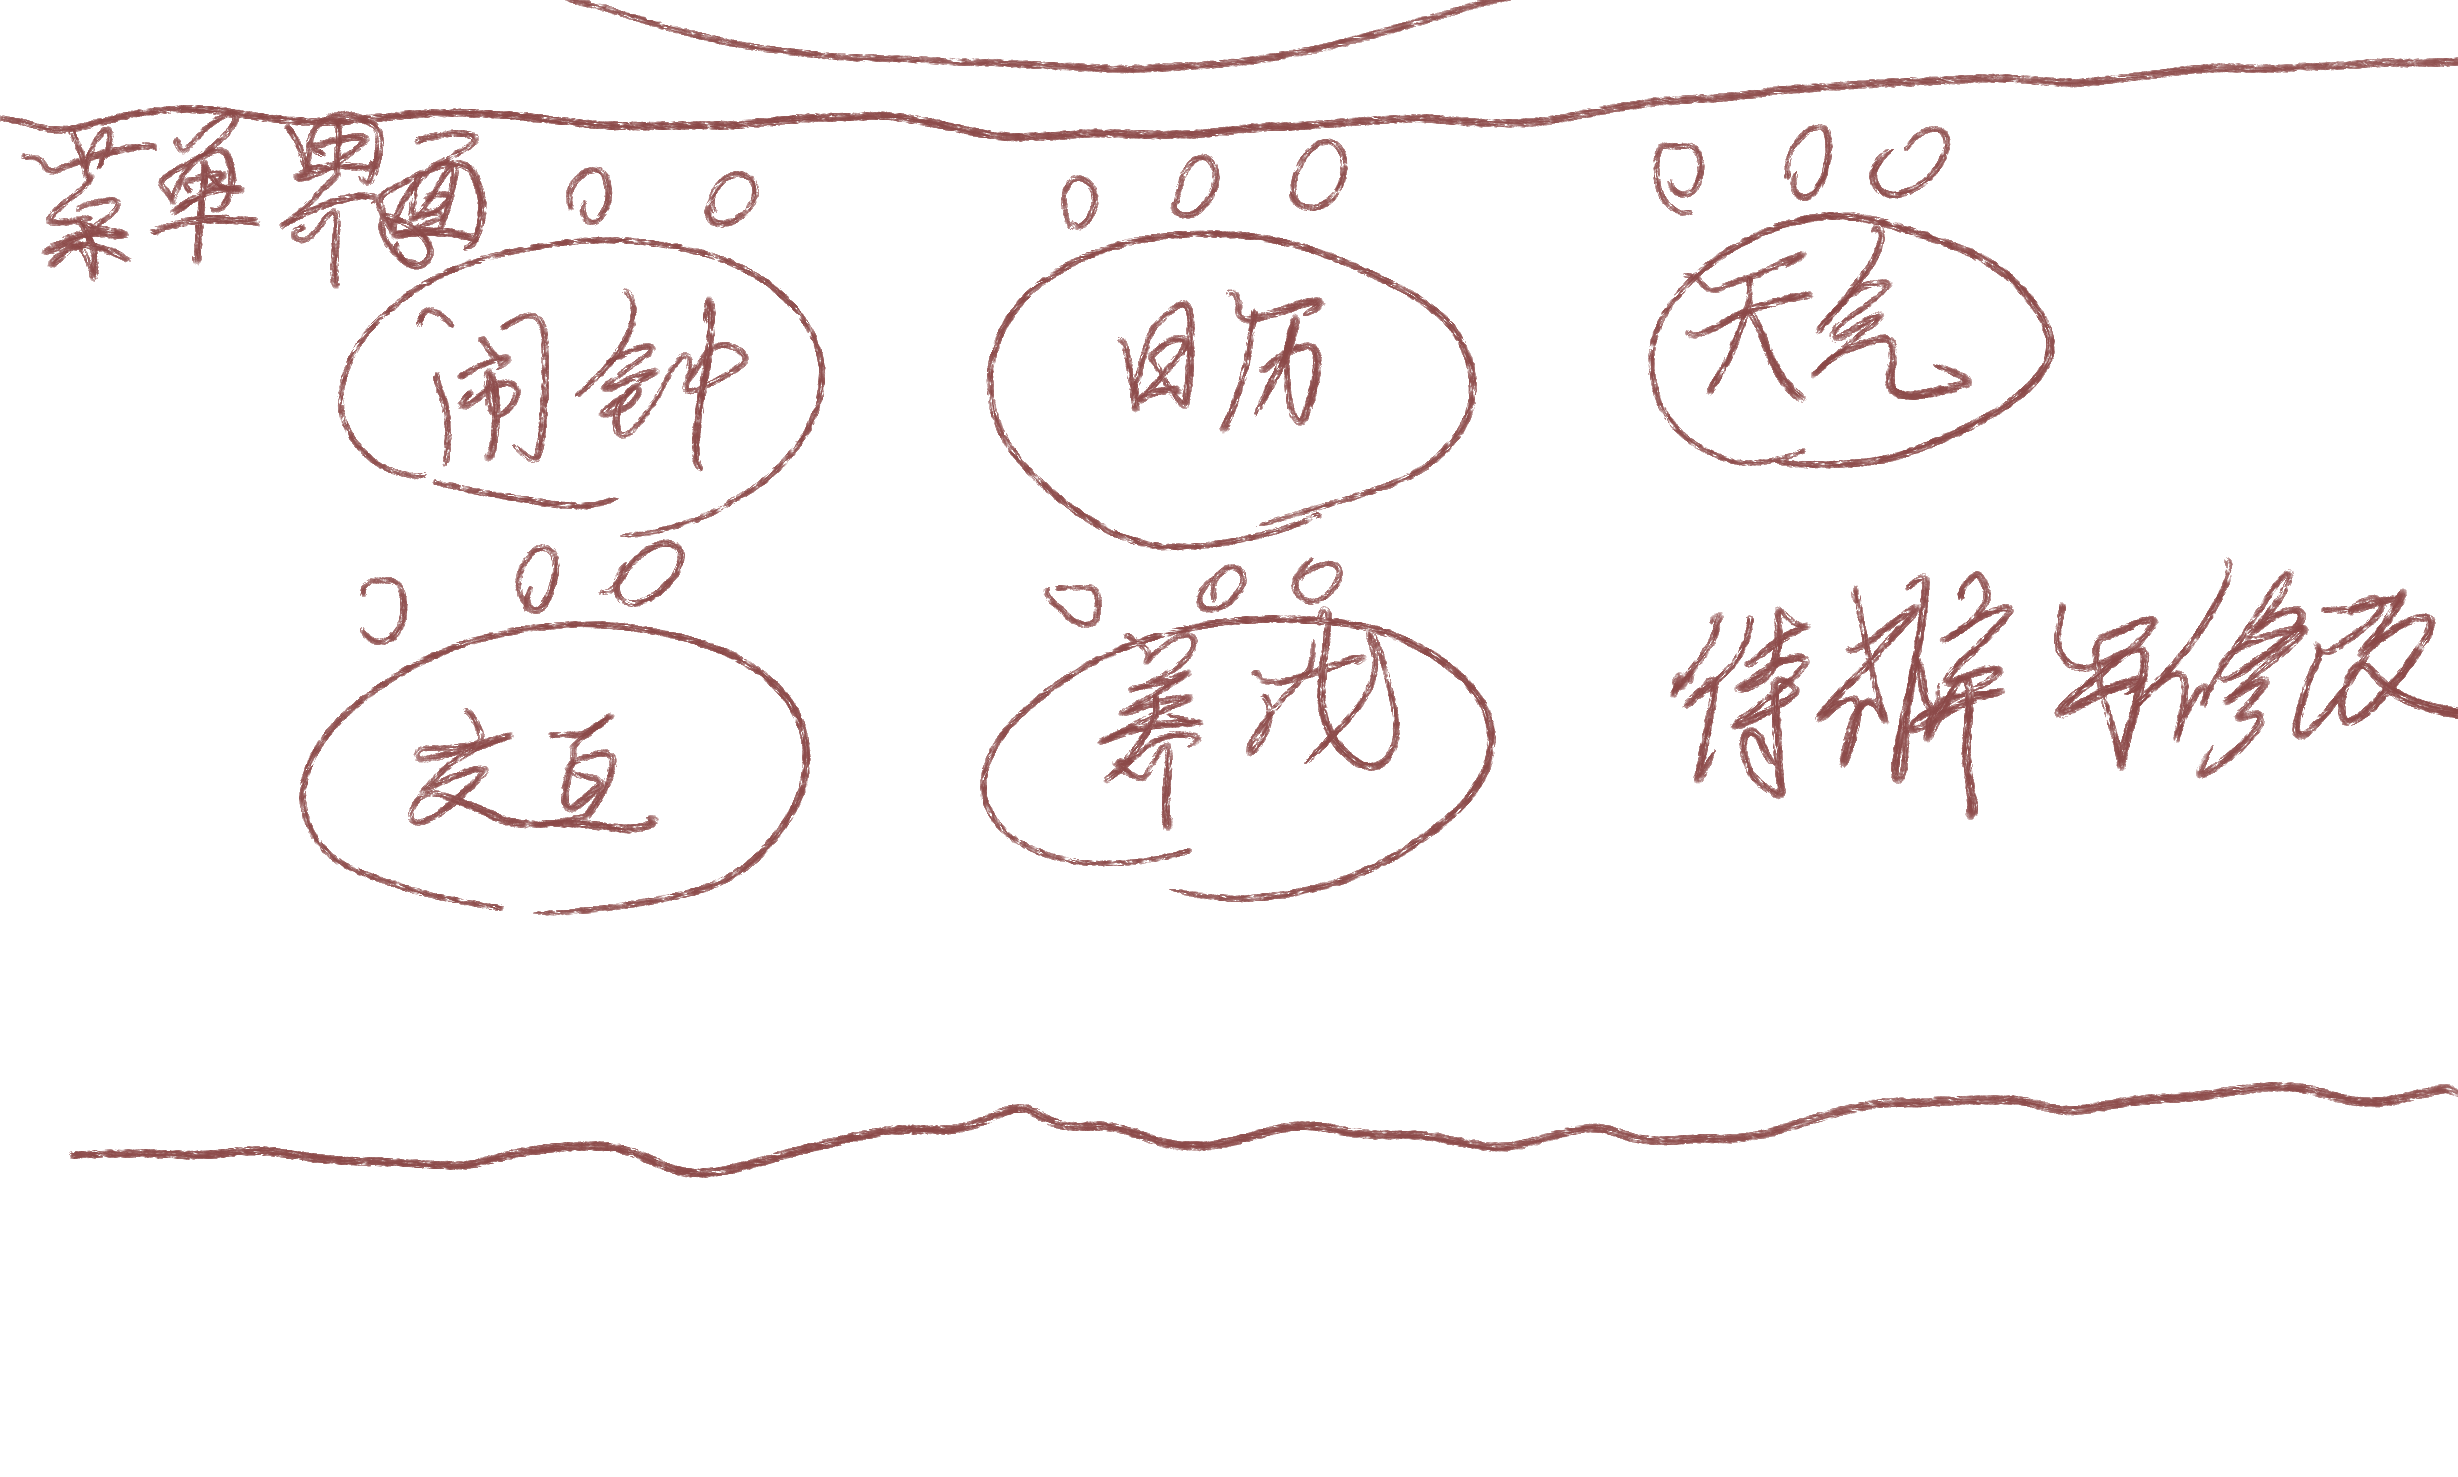 菜单界面
闹钟
日历
天气
交互
养成
待解 与修改